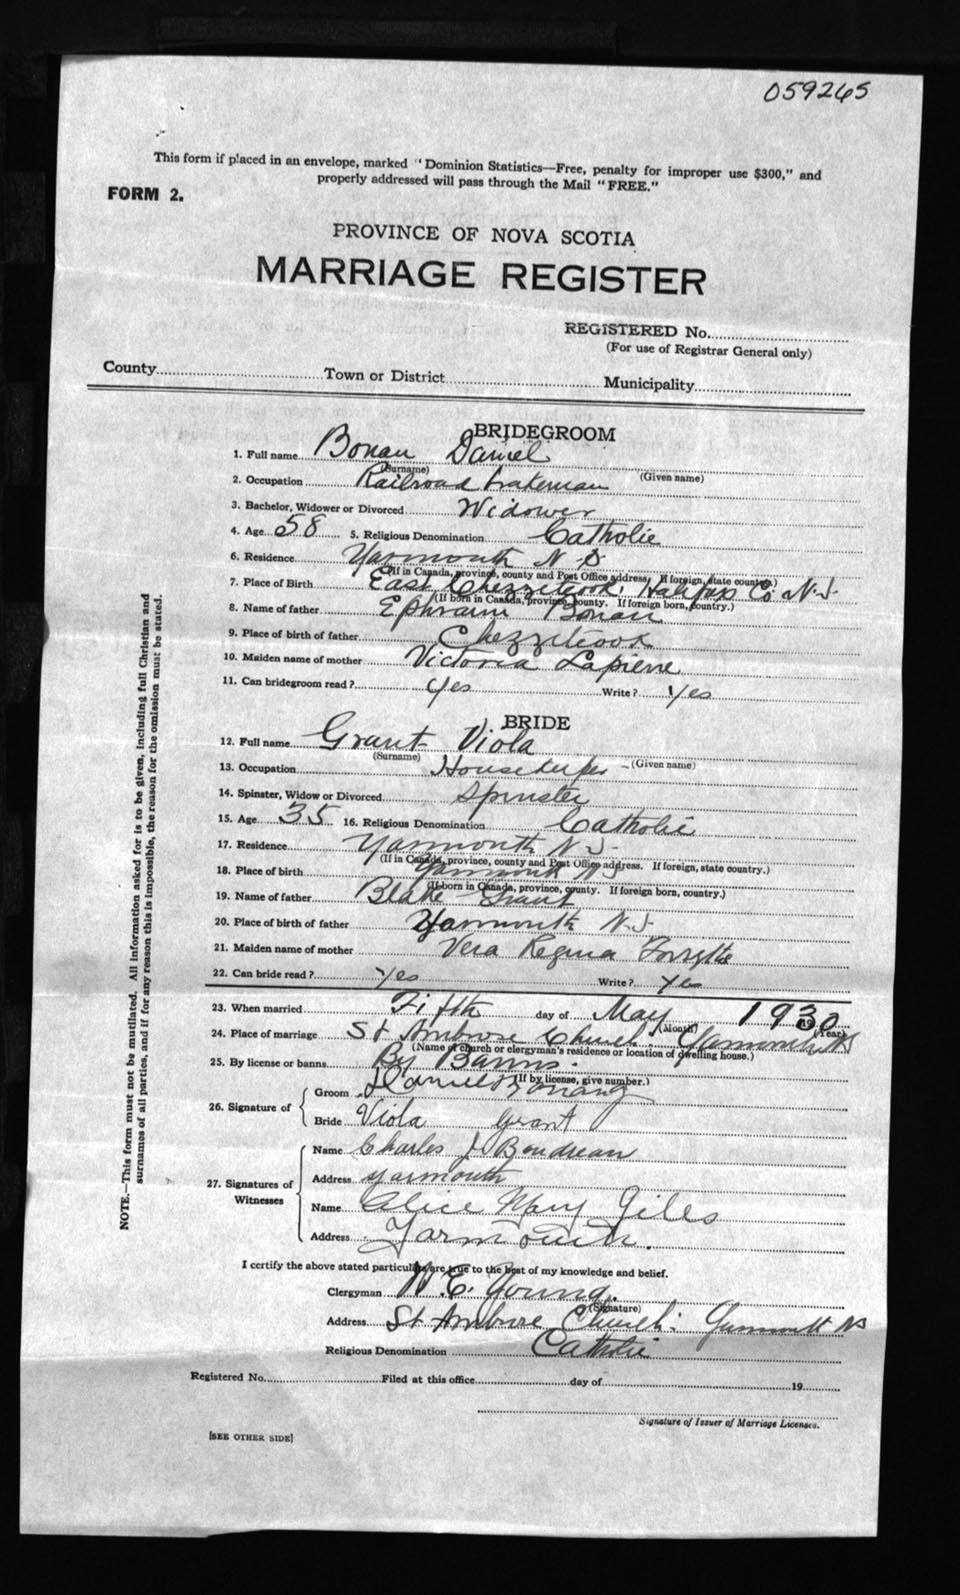 059265
This form if placed in an envelope, marked "Dominion Statistics—Free, penalty for improper use $300," and
properly addressed will pass through the Mail "FREE."
FORM 2.
PROVINCE OF NOVA SCOTIA
MARRIAGE REGISTER
REGISTERED No.
(For use of Registrar General only)
County Town or District Municipality
BRIDEGROOM
1. Full name Bonan Daniel
(Surname) (Given name)
2. Occupation Railroad brakeman
3. Bachelor, Widower or Divorced Widower
4. Age 58 5. Religious Denomination Catholic
6. Residence Yarmouth N.S
(If in Canada, province, county and Post Office address. If foreign, state country.)
7. Place of Birth East Chezzetcook, Halifax Co N.S.
(If born in Canada, province, county. If foreign born, country.)
8. Name of father Ephraim Bonan
9. Place of birth of father Chezzetcook
10. Maiden name of mother Victoria Lapierre
11. Can bridegroom read? Yes Write? Yes
BRIDE
12. Full name Grant Viola
(Surname) (Given name)
13. Occupation Housekeeper
14. Spinster, Widow or Divorced Spinster
15. Age 35 16. Religious Denomination Catholic
17. Residence Yarmouth N.S.
(If in Canada, province, county and Post Office address. If foreign, state country.)
18. Place of birth Yarmouth N S
(If born in Canada, province, county. If foreign born, country.)
19. Name of father Blake Grant
20. Place of birth of father Yarmouth N.S.
21. Maiden name of mother Vera Regina Forsythe
22. Can bride read? Yes Write? Yes
23. When married Fifth day of May 1930
(Month) 19 (Year)
24. Place of marriage St Ambrose Church. Yarmouth NS
(Name of church or clergyman's residence or location of dwelling house.)
25. By license or banns By Banns.
(If by license, give number.)
26. Signature of Groom Daniel Bonang
Bride Viola Grant
27. Signatures of Witnesses Name Charles J Boudreau
Address Yarmouth
Name Alice Mary Giles
Address Yarmouth.
I certify the above stated particulars are true to the best of my knowledge and belief.
Clergyman W. E. Young.
(Signature)
Address St Ambrose Church. Yarmouth NS
Religious Denomination Catholic
Registered No. Filed at this office day of 19
Signature of Issuer of Marriage Licenses.
[SEE OTHER SIDE]
NOTE.—This form must not be mutilated. All information asked for is to be given, including full Christian and
surnames of all parties, and if for any reason this is impossible, the reason for the omission must be stated.